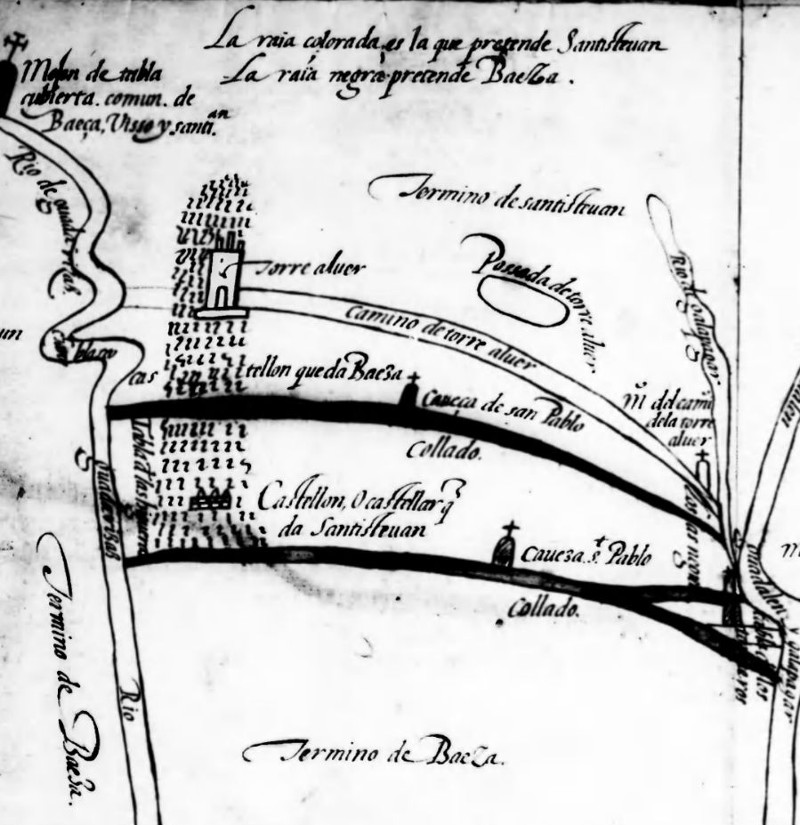 La raia colorada es la que pretende Santisteuan
La raia negra pretende Baeza.
Mojon de tabla
cubierta. comun. de
Baeça, Visso y santi.an
Rio de guadarrisas.
Termino de santisteuan
Torre aluer
Possada de torre aluer
Rio de galapagar
Camino de torre aluer
un
cas tellon que da Baeza
Caueça de san Pablo
Collado.
M.º del cami
de la torre
aluer
Castellon, O castellar q
da Santisteuan
Caueza s.t Pablo
Collado.
guadalen
galapagar
Rio
Termino de Baeza.
Termino de Baeza.